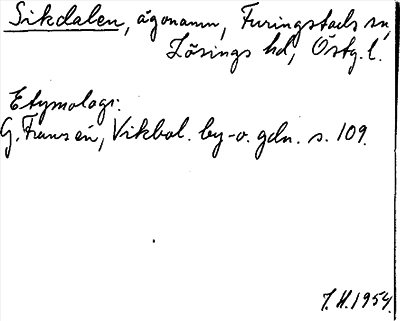 Sikdalen, ägonamn, Furingstads sn,
Lösings hd, Östg. l.
Etymologi:
G. Franzén, Vikbol. by- o. gdn. s. 109.
J. H. 1954.